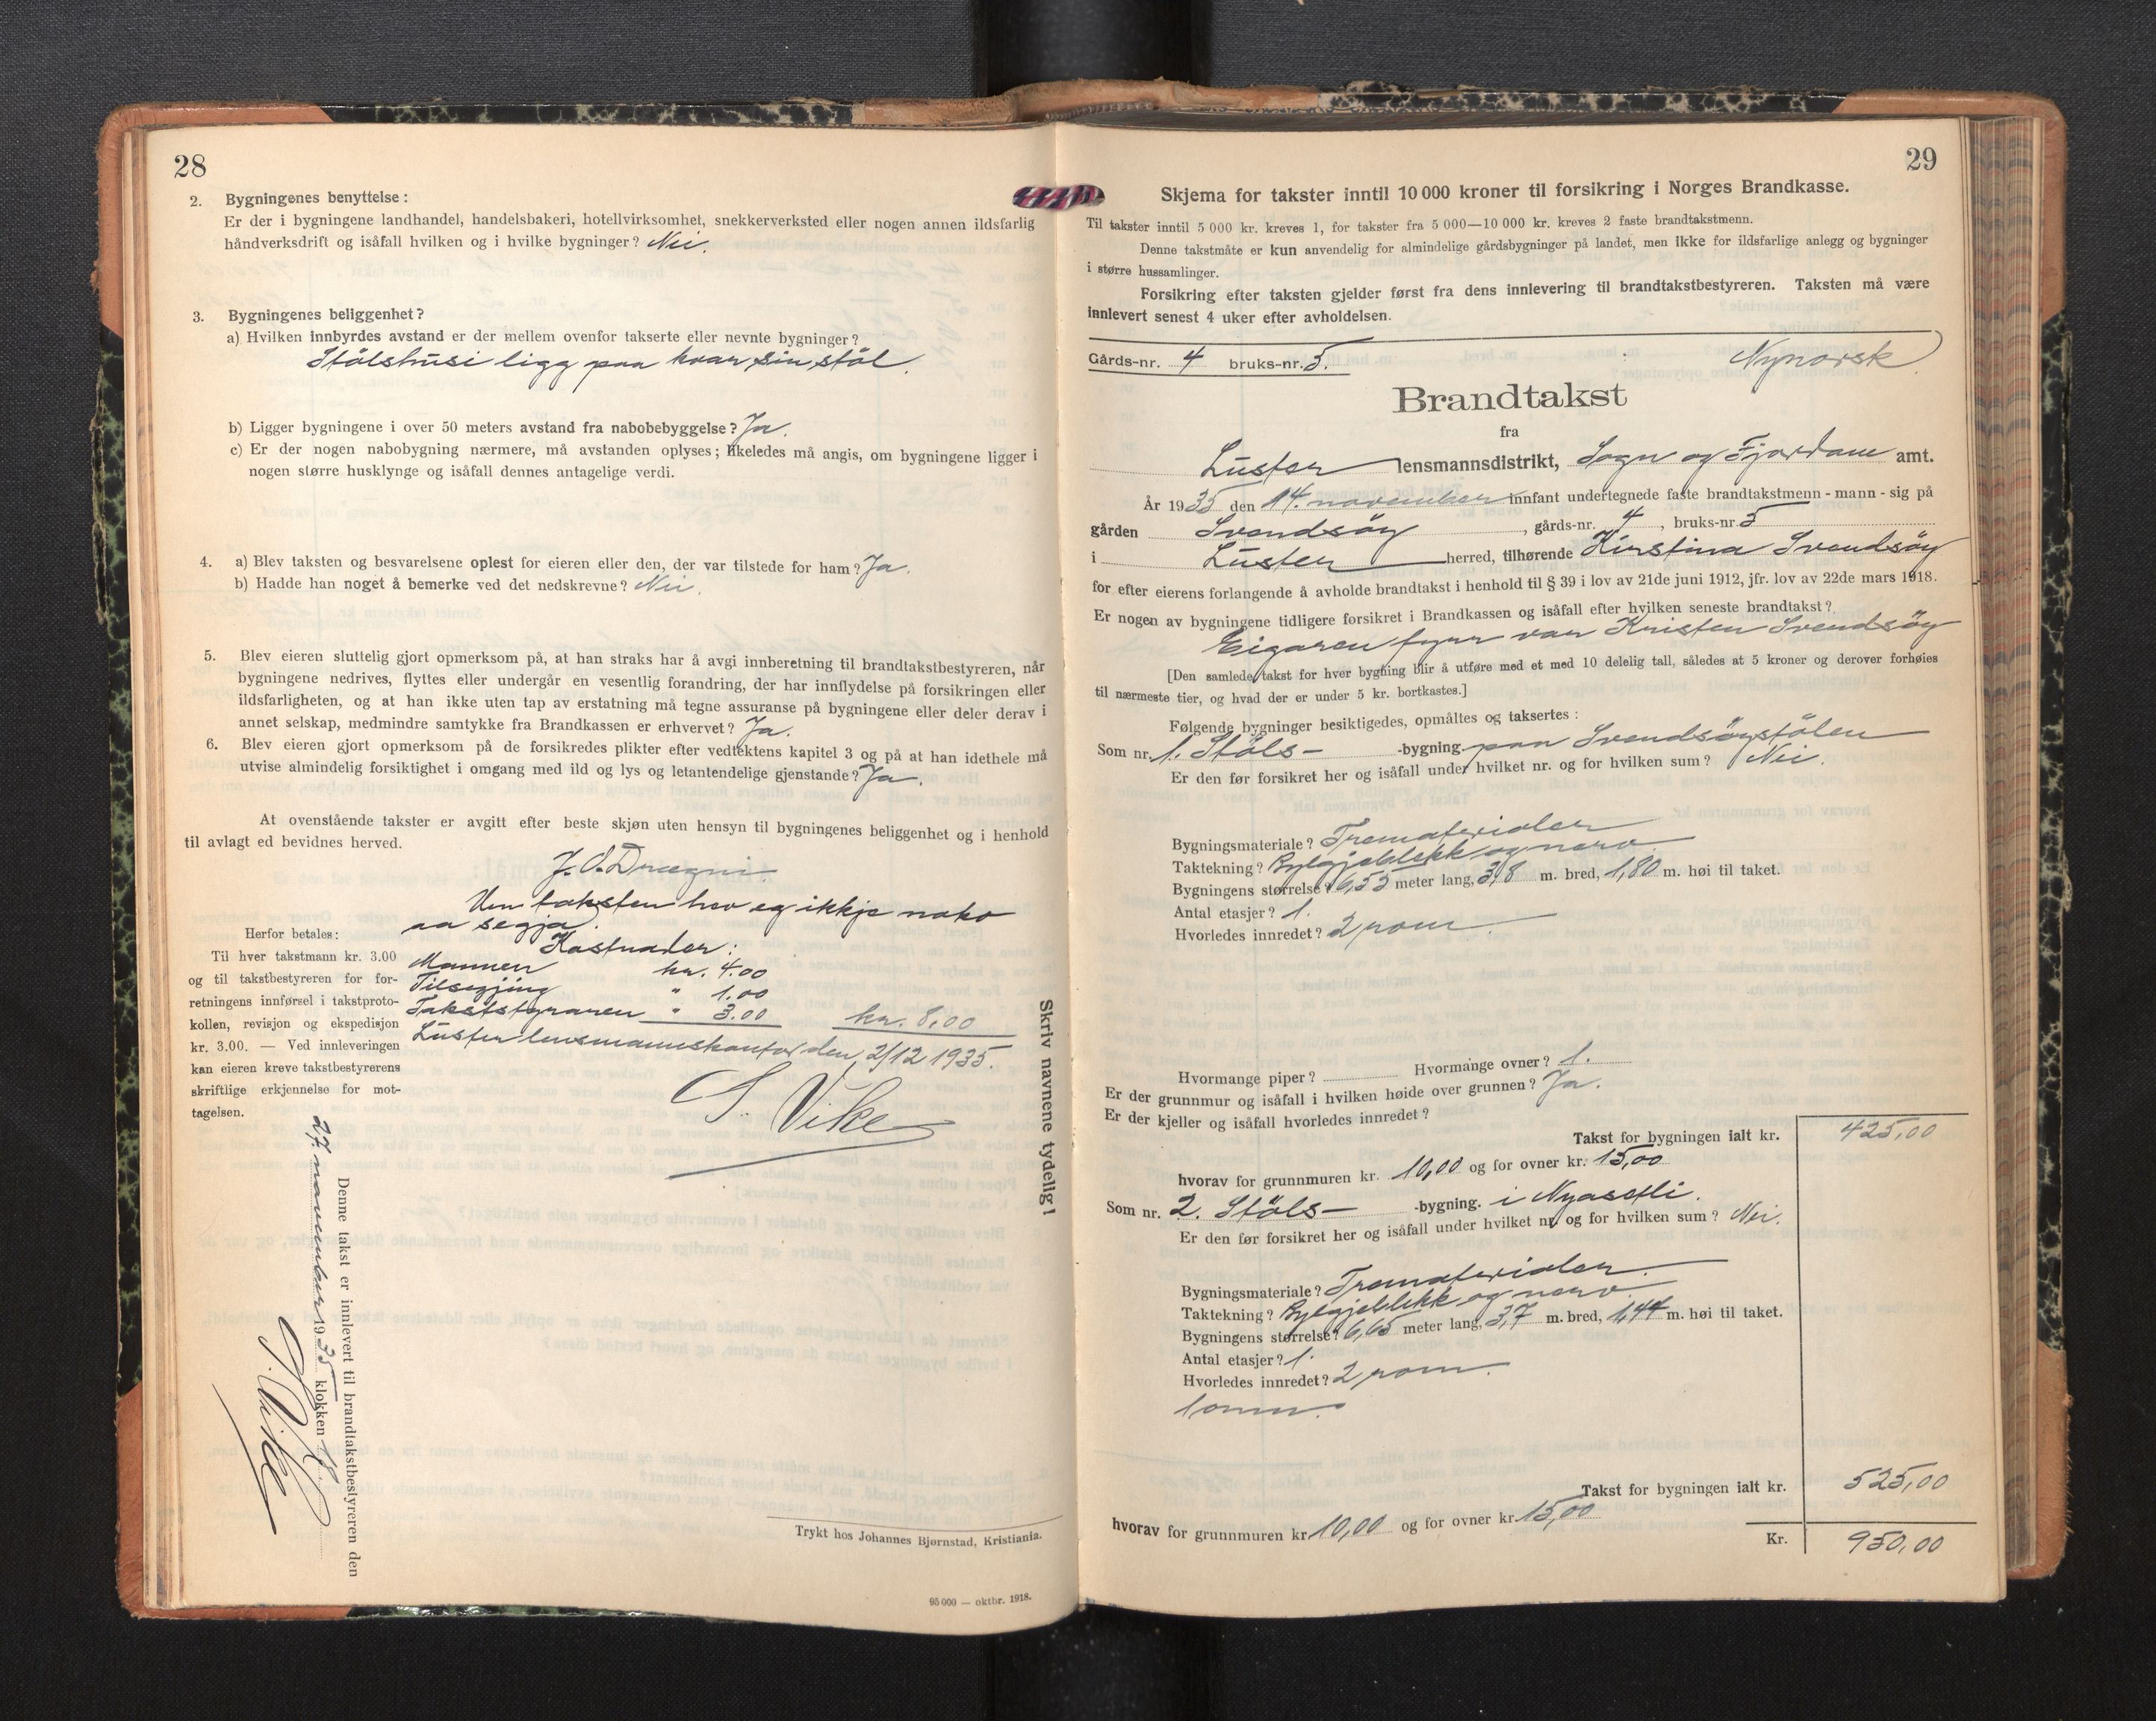 28
2. Bygningenes benyttelse:
Er der i bygningene landhandel, handelsbakeri, hotellvirksomhet, snekkerverksted eller nogen annen ildsfarlig
håndverksdrift og isåfall hvilken og i hvilke bygninger? Nei.
3. Bygningenes beliggenhet?
a) Hvilken innbyrdes avstand er der mellem ovenfor takserte eller nevnte bygninger?
Stölshusi ligg paa kvar sin stöl.
b) Ligger bygningene i over 50 meters avstand fra nabobebyggelse? Ja.
c) Er der nogen nabobygning nærmere, må avstanden oplyses; likeledes må angis, om bygningene ligger i
nogen større husklynge og isåfall dennes antagelige verdi.
4. a) Blev taksten og besvarelsene oplest for eieren eller den, der var tilstede for ham? Ja.
b) Hadde han noget å bemerke ved det nedskrevne? Nei.
5. Blev eieren sluttelig gjort opmerksom på, at han straks har å avgi innberetning til brandtakstbestyreren, når
bygningene nedrives, flyttes eller undergår en vesentlig forandring, der har innflydelse på forsikringen eller
ildsfarligheten, og at han ikke uten tap av erstatning må tegne assuranse på bygningene eller deler derav i
annet selskap, medmindre samtykke fra Brandkassen er erhvervet? Ja.
6. Blev eieren gjort opmerksom på de forsikredes plikter efter vedtektens kapitel 3 og på at han idethele må
utvise almindelig forsiktighet i omgang med ild og lys og letantendelige gjenstande? Ja.
At ovenstående takster er avgitt efter beste skjøn uten hensyn til bygningenes beliggenhet og i henhold
til avlagt ed bevidnes herved.
J. O. Drægni.
Um taksten hev eg ikkje noko
aa segja.
Kostnader:
Mannen kr. 4.00
Tilsegjing " 1.00
Takststyraren " 3.00 kr. 8,00
Luster lensmannskontor den 2/12 1935.
S. Vike
Herfor betales:
Til hver takstmann kr. 3.00
og til takstbestyreren for for-
retningens innførsel i takstproto-
kollen, revisjon og ekspedisjon
kr. 3.00. — Ved innleveringen
kan eieren kreve takstbestyrerens
skriftlige erkjennelse for mot-
tagelsen.
Denne takst er innlevert til brandtakstbestyreren den
27. november 1935 klokken 18.
S. Vike
Skriv navnene tydelig!
Trykt hos Johannes Bjørnstad, Kristiania.
95 000 — oktbr. 1918.
29
Skjema for takster inntil 10 000 kroner til forsikring i Norges Brandkasse.
Til takster inntil 5 000 kr. kreves 1, for takster fra 5 000—10 000 kr. kreves 2 faste brandtakstmenn.
Denne takstmåte er kun anvendelig for almindelige gårdsbygninger på landet, men ikke for ildsfarlige anlegg og bygninger
i større hussamlinger.
Forsikring efter taksten gjelder først fra dens innlevering til brandtakstbestyreren. Taksten må være
innlevert senest 4 uker efter avholdelsen.
Gårds-nr. 4 bruks-nr. 5. Nynorsk
Brandtakst
fra
Luster lensmannsdistrikt, Sogn og Fjordane amt.
År 1935 den 14. november innfant undertegnede faste brandtakstmenn - mann - sig på
gården Svendsöy, gårds-nr. 4, bruks-nr. 5
i Luster herred, tilhørende Kirstina Svendsöy
for efter eierens forlangende å avholde brandtakst i henhold til § 39 i lov av 21de juni 1912, jfr. lov av 22de mars 1918.
Er nogen av bygningene tidligere forsikret i Brandkassen og isåfall efter hvilken seneste brandtakst?
Eigaren fyrr var Kristen Svendsöy
[Den samlede takst for hver bygning blir å utføre med et med 10 delelig tall, således at 5 kroner og derover forhøies
til nærmeste tier, og hvad der er under 5 kr. bortkastes.]
Følgende bygninger besiktigedes, opmåltes og taksertes:
Som nr. 1. Stöls- -bygning. paa Svendsöystölen
Er den før forsikret her og isåfall under hvilket nr. og for hvilken sum? Nei.
Bygningsmateriale? Trematerialer
Taktekning? Bylgjeblekk og næver.
Bygningens størrelse? 6,55 meter lang, 3,8 m. bred, 1,80 m. høi til taket.
Antal etasjer? 1.
Hvorledes innredet? 2 rom.
Hvormange piper? Hvormange ovner? 1.
Er der grunnmur og isåfall i hvilken høide over grunnen? Ja.
Er der kjeller og isåfall hvorledes innredet?
Takst for bygningen ialt kr. 425,00
hvorav for grunnmuren kr. 10,00 og for ovner kr. 15,00
Som nr. 2. Stöls- -bygning. i Nyasetli.
Er den før forsikret her og isåfall under hvilket nr. og for hvilken sum? Nei.
Bygningsmateriale? Trematerialer.
Taktekning? Bylgjeblekk og næver.
Bygningens størrelse? 6,65 meter lang, 3,7 m. bred, 1,44 m. høi til taket.
Antal etasjer? 1.
Hvorledes innredet? 2 rom.
1 omn.
Takst for bygningen ialt kr. 525,00
hvorav for grunnmuren kr. 10,00 og for ovner kr. 15,00
Kr. 950,00